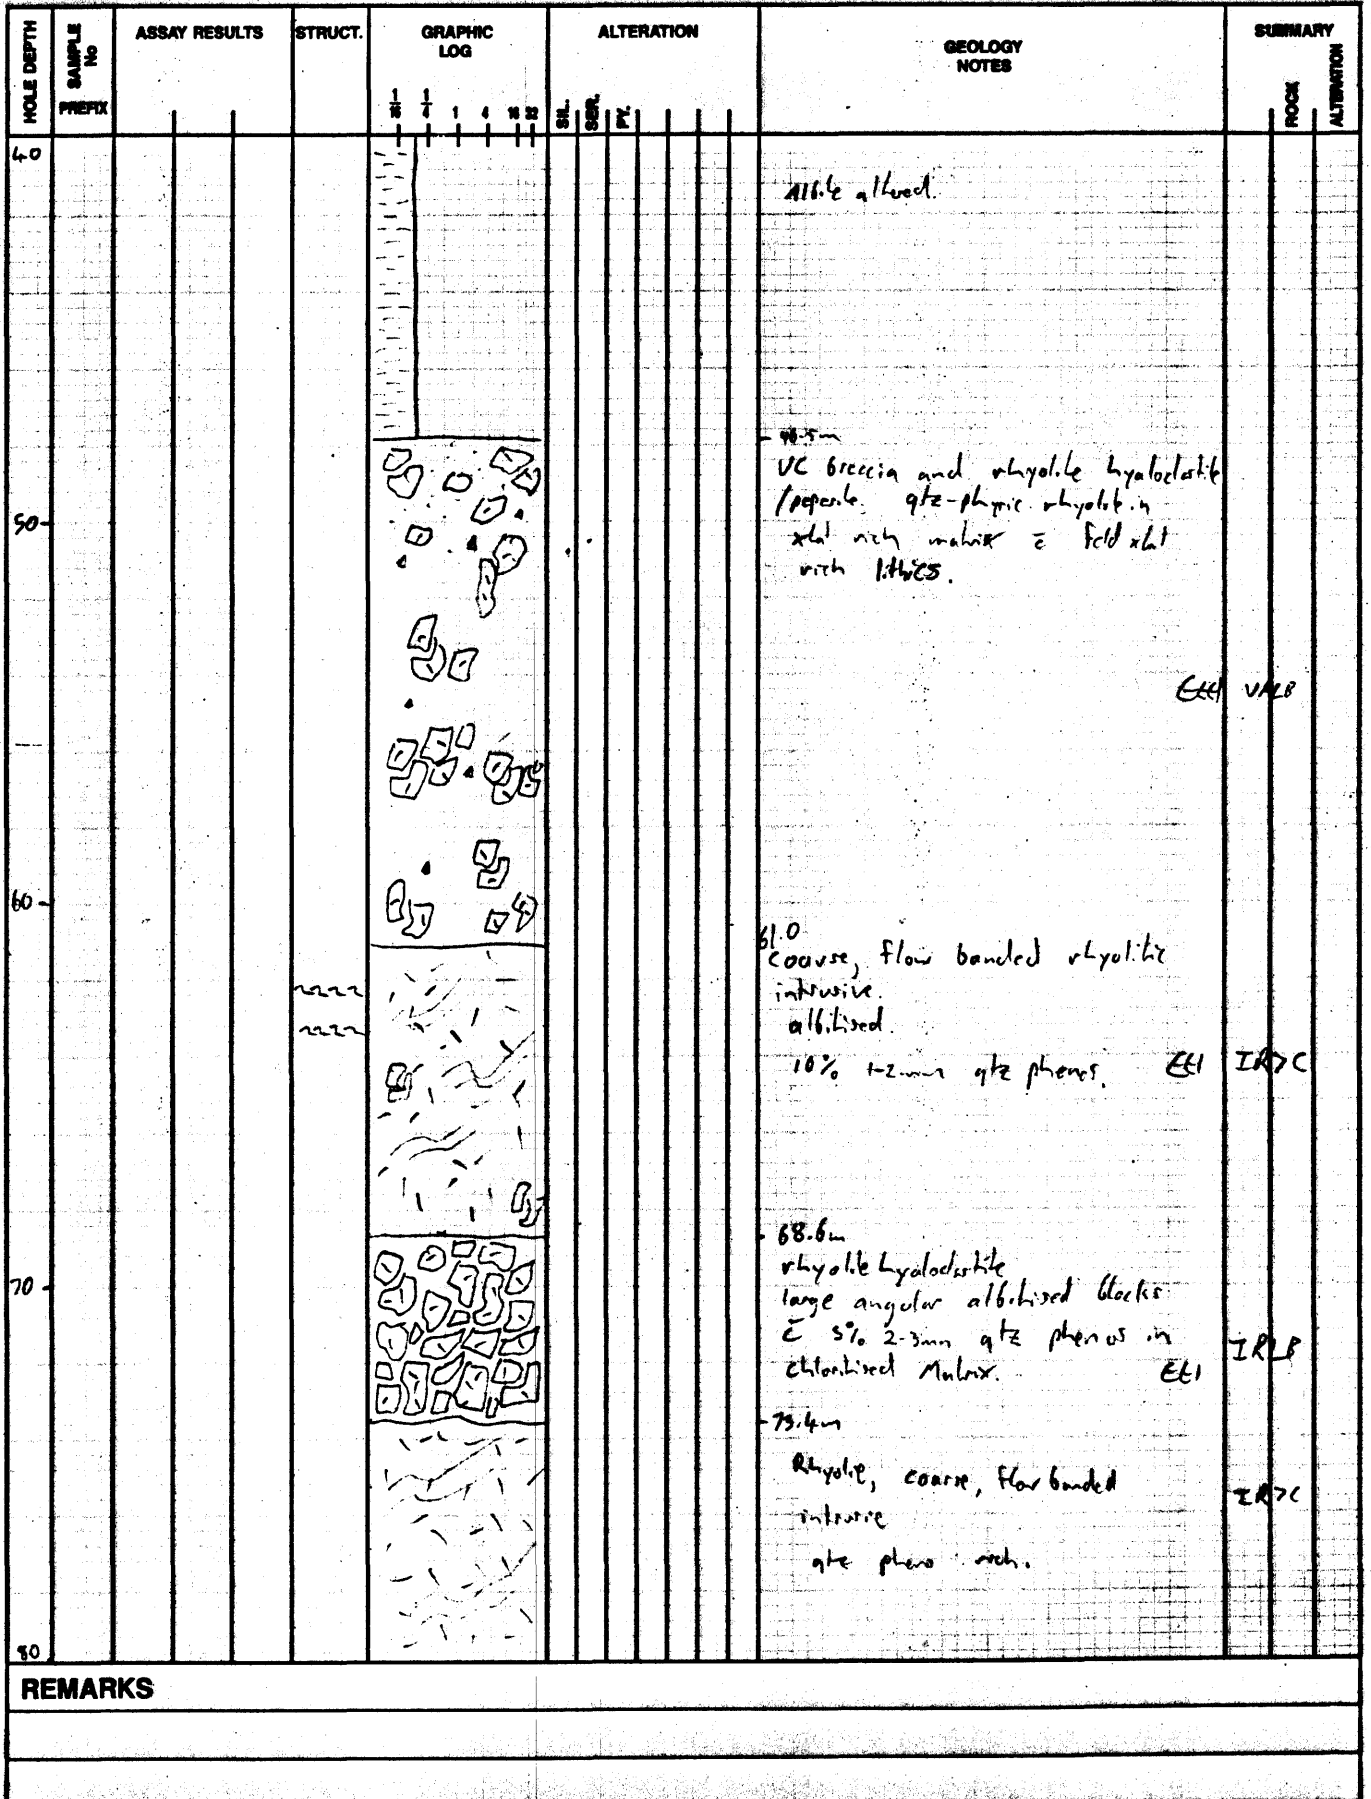 HOLE DEPTH
SAMPLE No
PREFIX
ASSAY RESULTS
STRUCT.
GRAPHIC LOG
1/16 1/4 1 4 16 32
ALTERATION
SIL. SER. PY.
GEOLOGY NOTES
SUMMARY
ROCK
ALTERATION
40
Albite altered.
VC breccia and rhyolite hyaloclastite
/peperite. qtz-phyric rhyolite in
50
xtal rich matrix c̄ feld xtal
rich lithics.
60
61.0
coarse, flow banded rhyolitic
intrusive.
albitised.
10% 1-2mm qtz phenos.
68.6m
rhyolite hyaloclastite
70
large angular albitised blocks
c̄ 5% 2-3mm qtz phenos in
chloritised Matrix.
73.4m
Rhyolite, coarse, flow banded
intrusive
qtz pheno rich.
80
REMARKS